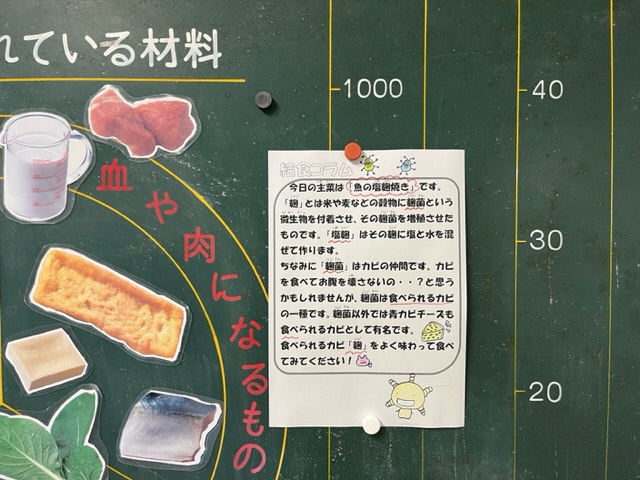 れている材料
1000
40
30
20
200mL
血や肉になるもの
給食コラム
今日の主菜は「魚の塩麹焼き」です。
「麹」とは米や麦などの穀物に麹菌という
微生物を付着させ、その麹菌を増殖させた
ものです。「塩麹」はその麹に塩と水を混
ぜて作ります。
ちなみに「麹菌」はカビの仲間です。カビ
を食べてお腹を壊さないの・・?と思う
かもしれませんが、麹菌は食べられるカビ
の一種です。麹菌以外では青カビチーズも
食べられるカビとして有名です。
食べられるカビ「麹」をよく味わって食べ
てみてください!